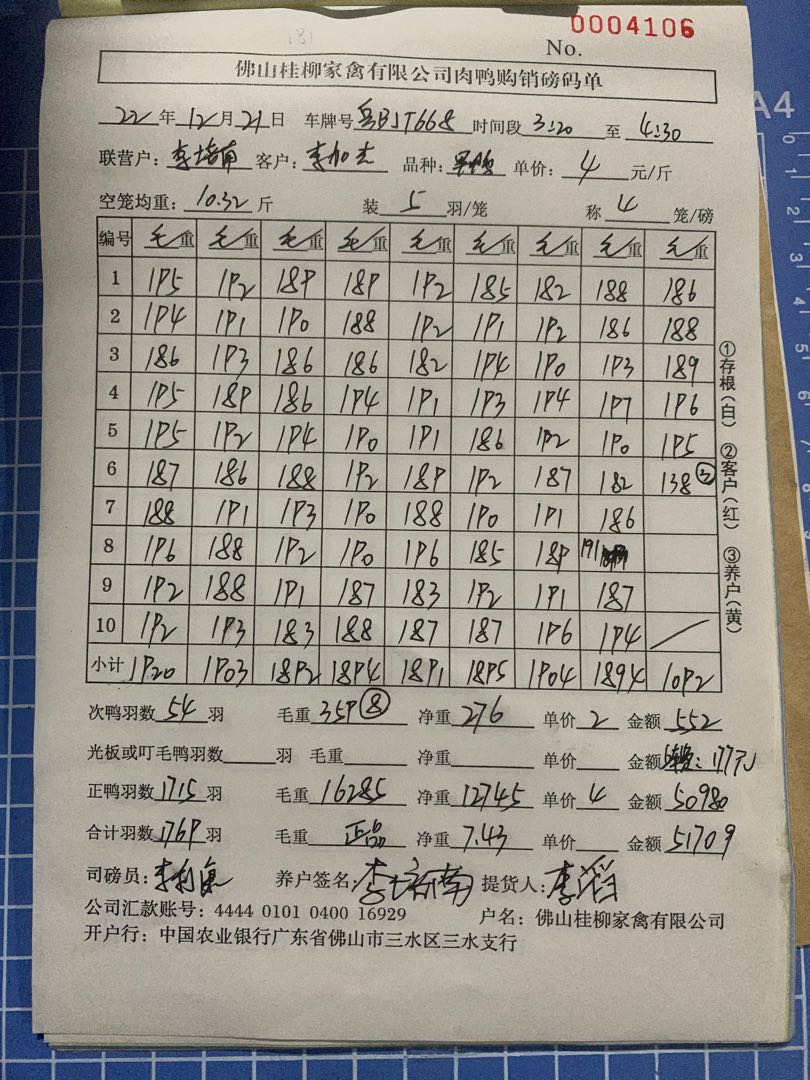 0004106
No.
佛山桂柳家禽有限公司肉鸭购销磅码单
22 年 12 月 21 日 车牌号 粤BJT668 时间段 3:20 至 4:30
联营户: 李培南 客户: 李加 品种: 单价: 4 元/斤
空笼均重: 10.32 斤 装 5 羽/笼 称 4 笼/磅
编号 毛重 毛重 毛重 毛重 毛重 毛重 毛重 毛重 毛重
1 195 192 189 189 192 185 182 188 186
2 194 191 190 188 192 191 192 186 188
3 186 193 186 186 182 194 190 193 189
4 195 189 186 194 191 193 194 197 196
5 195 192 194 190 191 186 192 190 195
6 187 186 188 192 189 192 187 182 138 ③
7 188 191 193 190 188 190 191 186
8 196 188 192 190 196 185 189 191
9 192 188 191 187 183 192 191 187
10 192 193 183 188 187 187 196 194 /
小计 1920 1903 1892 1894 1891 1895 1904 1894 1092
次鸭羽数 54 羽 毛重 359 ⑧ 净重 276 单价 2 金额 552
光板或叮毛鸭羽数 羽 毛重 净重 单价 金额 : 177元
正鸭羽数 1715 羽 毛重 16285 净重 12745 单价 4 金额 50980
合计羽数 1769 羽 毛重 正品 净重 7.43 单价 金额 51709
司磅员: 李 养户签名: 李培南 提货人: 李滔
公司汇款账号: 4444 0101 0400 16929 户名: 佛山桂柳家禽有限公司
开户行: 中国农业银行广东省佛山市三水区三水支行
①存根(白) ②客户(红) ③养户(黄)
A4
0
1
2
3
4
5
6
7